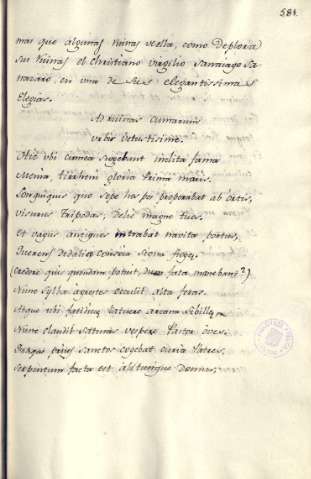 581.
mas que algunas ruinas de ella, como deplora
sus ruinas el christiano virgilio Sannaiago Sa
nazaro, en una de sus elegantissimas
Elegias.
Ad ruinas Cumarum
urbis vetustissime.
Hic ubi cumea surgebant inclita fama
Menia, tirrheni gloria prima maris.
Longinquis quo sepe hospes properabat ab oris,
visurus tripodas, Delie magne tuos.
Et vagus antiquos intrabat navita portus,
Querens dedalice conscia signa fuge,
(credere quis quondam potuit, dum fata manebant?)
Nunc sylva agrestes occulit alta feras.
Atque ubi fatidice latuere arcana Sibille,
Nunc claudit saturas vespere Pastor oves.
Queque prius sanctos cogebat curia Patres,
Serpentum facta est alituumque domus,